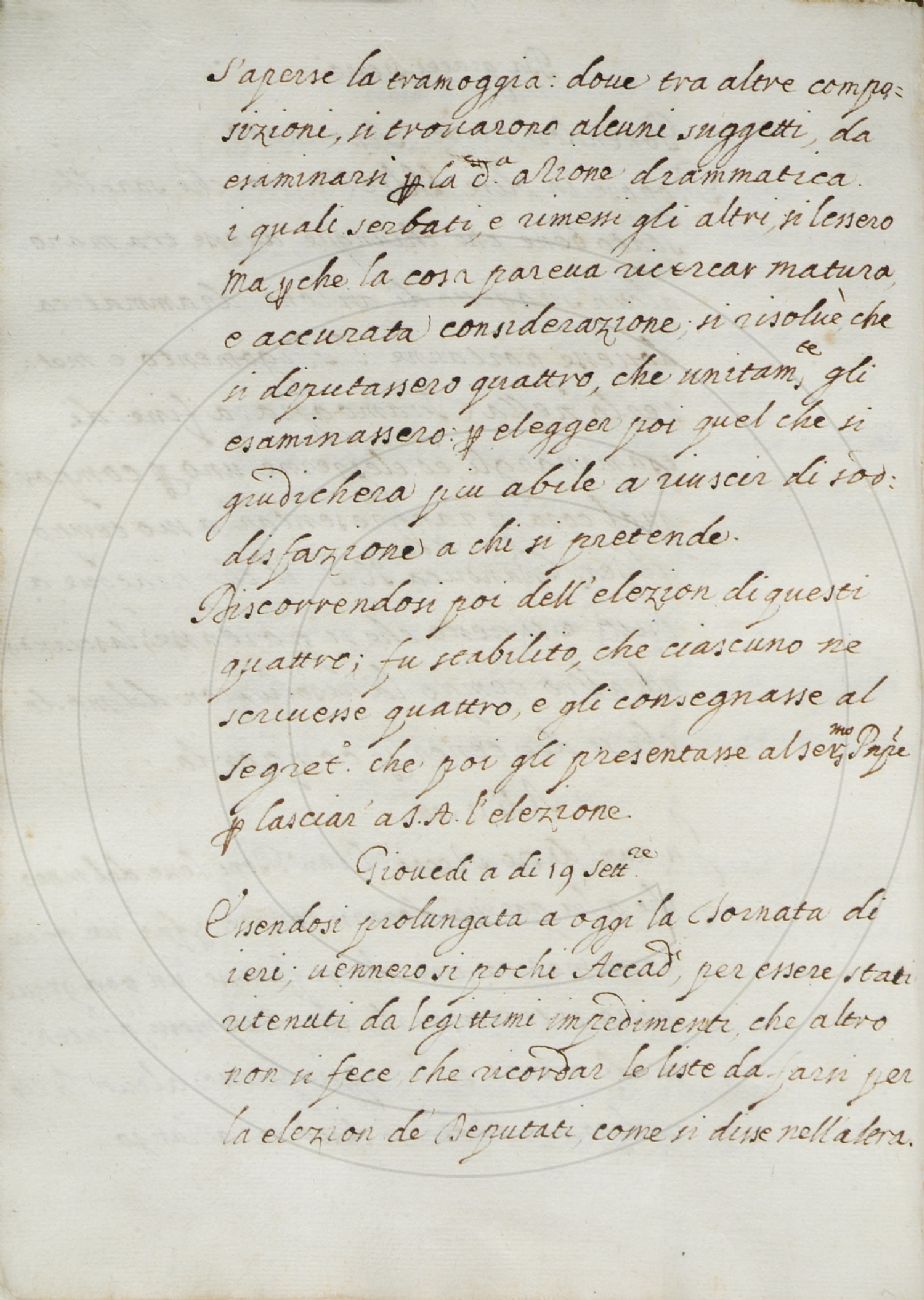 S'aperse la tramoggia: doue tra altre compo=
sizioni, si trouarono alcuni suggetti, da
esaminarsi ꝑ la d.ᵃ azione drammatica.
i quali serbati, e rimessi gli altri, si lessero
Ma ꝑche la cosa pareua ricercar matura,
e accurata considerazione; si risoluè, che
si deputassero quattro, che unitam.ᵗᵉ gli
esaminassero: ꝑ elegger poi quel che si
giudichera piu abile a riuscir di sod:
disfazione a chi si pretende.
Discorrendosi poi dell'elezion di questi
quattro; fu stabilito, che ciascuno ne
scriuesse quattro, e gli consegnasse al
segret.º che poi gli presentasse al Ser.ᵐᵒ Pnpe
ꝑ lasciar' a S. A. l'elezione.
Giouedi a di 19 Sett.ʳᵉ
Essendosi prolungata a oggi la Tornata di
ieri; uennero si pochi Accad.ⁱ, per essere stati
ritenuti da legittimi impedimenti, che altro
non si fece, che ricordar le liste da farsi per
la elezion de' Deputati, come si disse nell'altra.